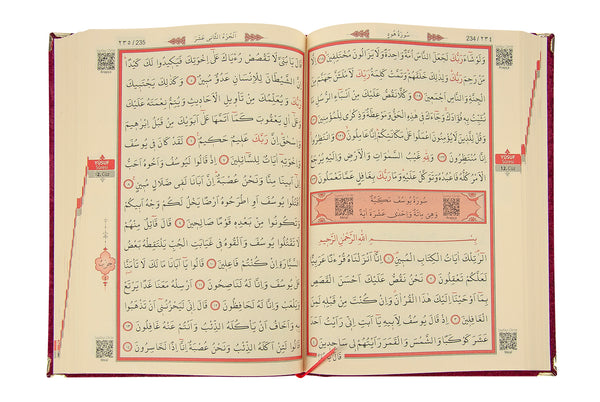 سُورَةُ هُودٍ 234 / ٢٣٤
وَلَوْ شَاءَ رَبُّكَ لَجَعَلَ النَّاسَ اُمَّةً وَاحِدَةً وَلَا يَزَالُونَ مُخْتَلِفِينَ اِلَّا
مَنْ رَحِمَ رَبُّكَ وَلِذٰلِكَ خَلَقَهُمْ وَتَمَّتْ كَلِمَةُ رَبِّكَ لَاَمْلَـَٔنَّ جَهَنَّمَ مِنَ
الْجِنَّةِ وَالنَّاسِ اَجْمَعِينَ وَكُلًّا نَقُصُّ عَلَيْكَ مِنْ اَنْبَاءِ الرُّسُلِ مَا
نُثَبِّتُ بِهِ فُؤَادَكَ وَجَاءَكَ فِي هٰذِهِ الْحَقُّ وَمَوْعِظَةٌ وَذِكْرٰى لِلْمُؤْمِنِينَ
وَقُلْ لِلَّذِينَ لَا يُؤْمِنُونَ اعْمَلُوا عَلٰى مَكَانَتِكُمْ اِنَّا عَامِلُونَ وَانْتَظِرُوا
اِنَّا مُنْتَظِرُونَ وَلِلّٰهِ غَيْبُ السَّمٰوَاتِ وَالْاَرْضِ وَاِلَيْهِ يُرْجَعُ
الْاَمْرُ كُلُّهُ فَاعْبُدْهُ وَتَوَكَّلْ عَلَيْهِ وَمَا رَبُّكَ بِغَافِلٍ عَمَّا تَعْمَلُونَ
سُورَةُ يُوسُفَ مَكِّيَّةٌ
وَهِيَ مِائَةٌ وَاِحْدٰى عَشَرَةَ اٰيَةً
بِسْمِ اللّٰهِ الرَّحْمٰنِ الرَّحِيمِ
الٓرٰ تِلْكَ اٰيَاتُ الْكِتَابِ الْمُبِينِ اِنَّا اَنْزَلْنَاهُ قُرْاٰنًا عَرَبِيًّا
لَعَلَّكُمْ تَعْقِلُونَ نَحْنُ نَقُصُّ عَلَيْكَ اَحْسَنَ الْقَصَصِ
بِمَا اَوْحَيْنَا اِلَيْكَ هٰذَا الْقُرْاٰنَ وَاِنْ كُنْتَ مِنْ قَبْلِهِ لَمِنَ
الْغَافِلِينَ اِذْ قَالَ يُوسُفُ لِاَبِيهِ يَا اَبَتِ اِنِّي رَاَيْتُ اَحَدَ
عَشَرَ كَوْكَبًا وَالشَّمْسَ وَالْقَمَرَ رَاَيْتُهُمْ لِي سَاجِدِينَ
قَالَ يَا
YUSUF
12.Cüz
235 / ٢٣٥ اَلْجُزْءُ الثَّانِي عَشَرَ
قَالَ يَا بُنَيَّ لَا تَقْصُصْ رُءْيَاكَ عَلٰى اِخْوَتِكَ فَيَكِيدُوا لَكَ كَيْدًا
اِنَّ الشَّيْطَانَ لِلْاِنْسَانِ عَدُوٌّ مُبِينٌ وَكَذٰلِكَ يَجْتَبِيكَ
رَبُّكَ وَيُعَلِّمُكَ مِنْ تَأْوِيلِ الْاَحَادِيثِ وَيُتِمُّ نِعْمَتَهُ عَلَيْكَ
وَعَلٰى اٰلِ يَعْقُوبَ كَمَا اَتَمَّهَا عَلٰى اَبَوَيْكَ مِنْ قَبْلُ اِبْرٰهِيمَ
وَاِسْحٰقَ اِنَّ رَبَّكَ عَلِيمٌ حَكِيمٌ لَقَدْ كَانَ فِي يُوسُفَ
وَاِخْوَتِهِ اٰيَاتٌ لِلسَّائِلِينَ اِذْ قَالُوا لَيُوسُفُ وَاَخُوهُ اَحَبُّ
اِلٰى اَبِينَا مِنَّا وَنَحْنُ عُصْبَةٌ اِنَّ اَبَانَا لَفِي ضَلَالٍ مُبِينٍ
اُقْتُلُوا يُوسُفَ اَوِ اطْرَحُوهُ اَرْضًا يَخْلُ لَكُمْ وَجْهُ اَبِيكُمْ
وَتَكُونُوا مِنْ بَعْدِهِ قَوْمًا صَالِحِينَ قَالَ قَائِلٌ مِنْهُمْ
لَا تَقْتُلُوا يُوسُفَ وَاَلْقُوهُ فِي غَيَابَتِ الْجُبِّ يَلْتَقِطْهُ بَعْضُ
السَّيَّارَةِ اِنْ كُنْتُمْ فَاعِلِينَ قَالُوا يَا اَبَانَا مَا لَكَ لَا تَأْمَنَّا
عَلٰى يُوسُفَ وَاِنَّا لَهُ لَنَاصِحُونَ اَرْسِلْهُ مَعَنَا غَدًا يَرْتَعْ
وَيَلْعَبْ وَاِنَّا لَهُ لَحَافِظُونَ قَالَ اِنِّي لَيَحْزُنُنِي اَنْ تَذْهَبُوا
بِهِ وَاَخَافُ اَنْ يَأْكُلَهُ الذِّئْبُ وَاَنْتُمْ عَنْهُ غَافِلُونَ
قَالُوا لَئِنْ اَكَلَهُ الذِّئْبُ وَنَحْنُ عُصْبَةٌ اِنَّا اِذًا لَخَاسِرُونَ
YUSUF
12.Cüz